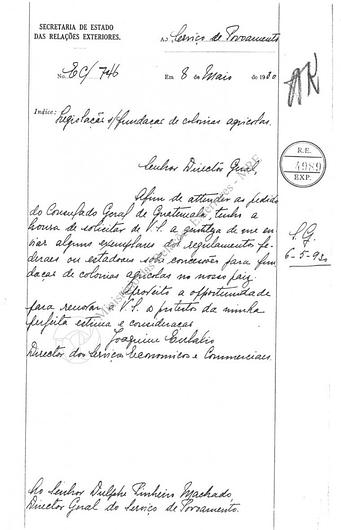 SECRETARIA DE ESTADO
DAS RELAÇÕES EXTERIORES.
Ao Serviço de Povoamento
No. EC/746
Em 8 de Maio de 1930
Indice: Legislação s/fundação de colonias agricolas.
R.E.
4989
EXP.
Senhor Director Geral,
Afim de attender ao pedido
do Consulado Geral de Guatemala, tenho a
honra de solicitar de V.S. a gentileza de me en-
viar alguns exemplares dos regulamentos fe-
deraes ou estadoaes sobre concessões para fun-
dação de colonias agricolas no nosso paiz.
Aproveito a opportunidade
para renovar a V.S. os protestos da minha
perfeita estima e consideração
Joaquim Eulalio
Director dos Serviços Economicos e Commerciaes.
S.G.
6-5-930
Ao Senhor Dulphe Pinheiro Machado,
Director Geral do Serviço de Povoamento.